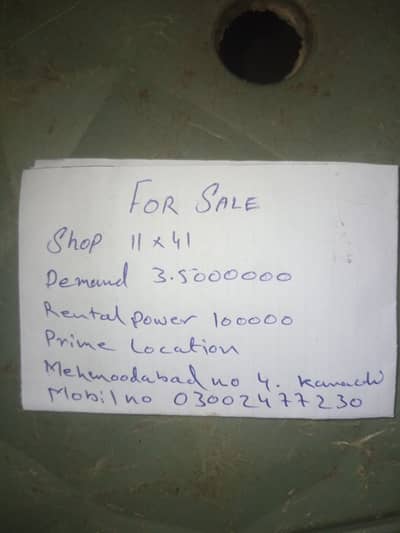 FOR SALE
Shop 11 x 41
Demand 3.5000000
Rental power 100000
Prime Location
Mehmoodabad no 4. Karachi
Mobil no 03002477230